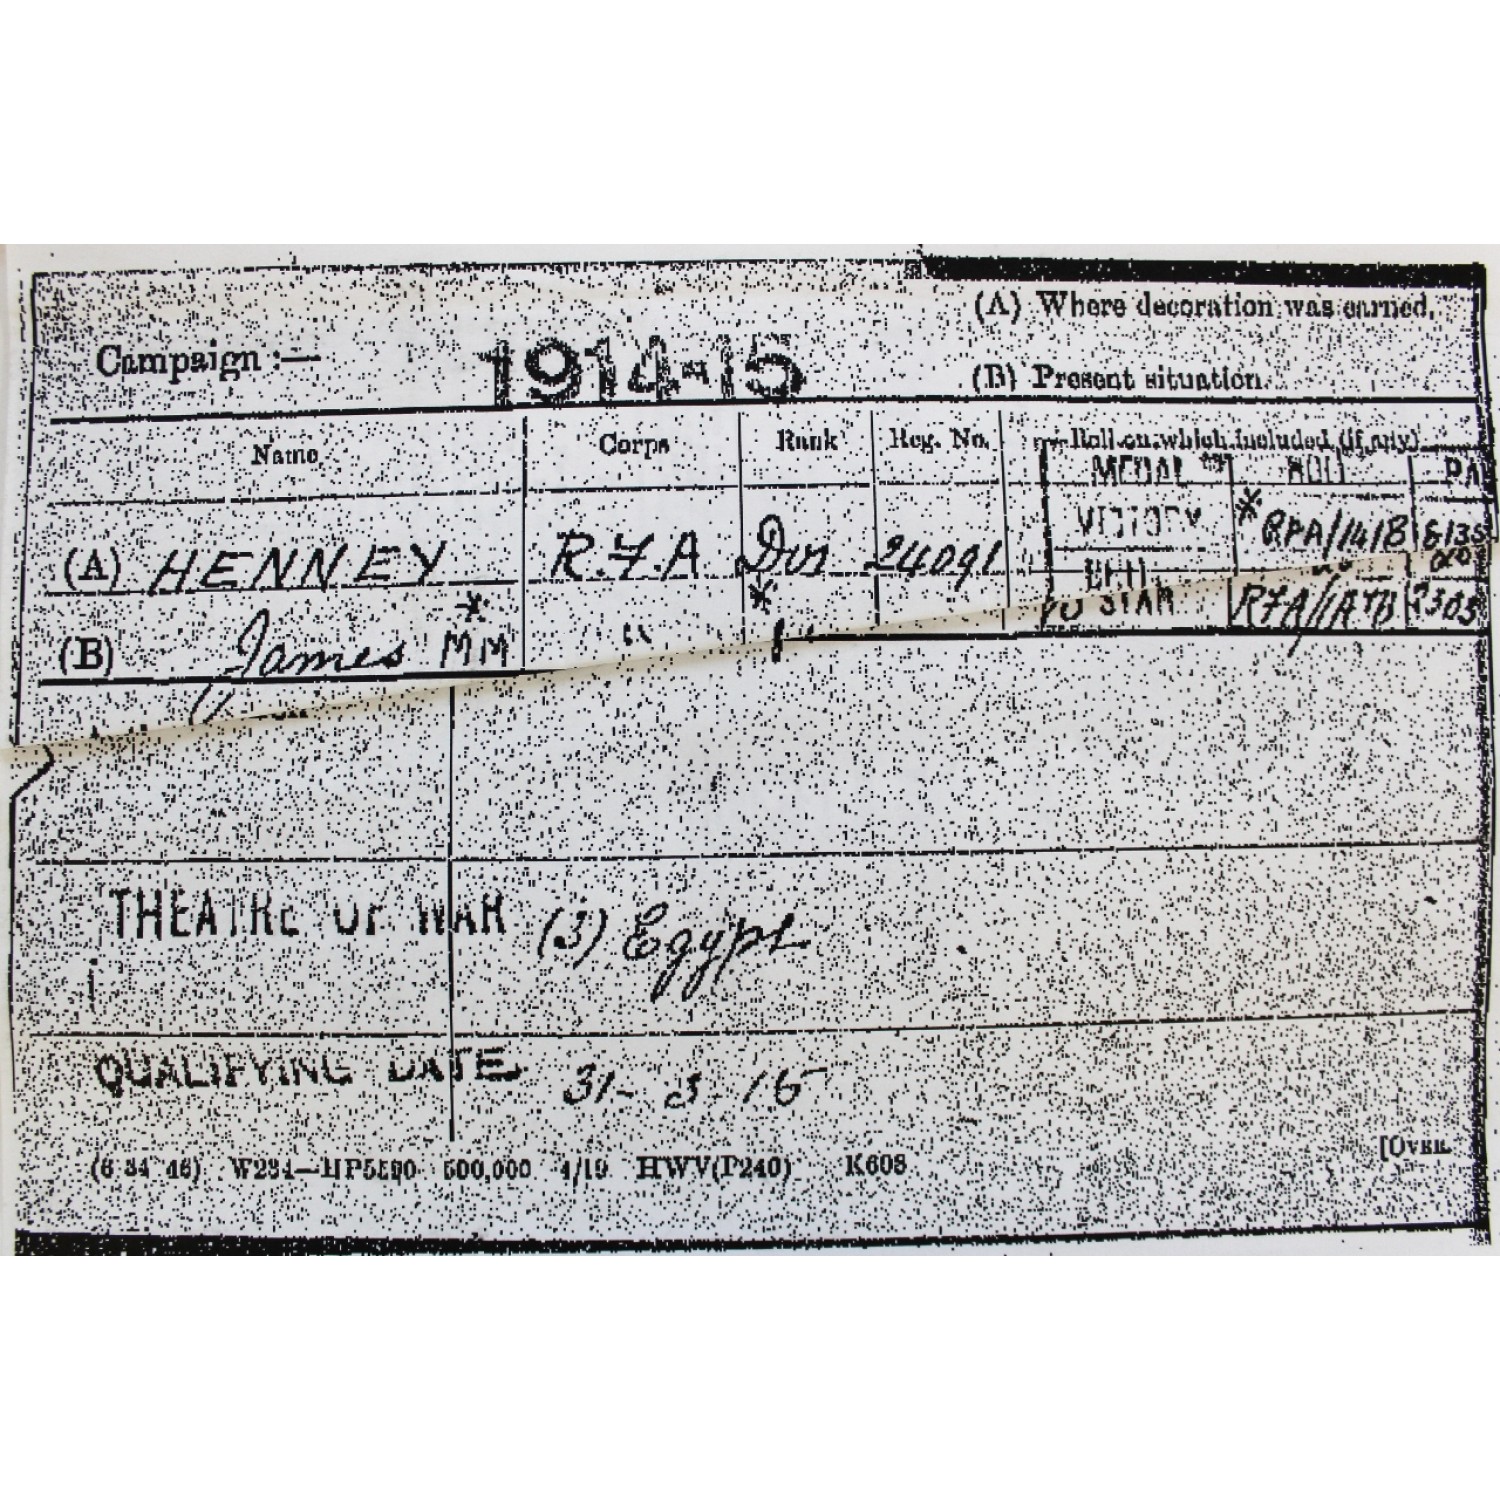 (A) Where decoration was earned.
Campaign :— 1914-15
(B) Present situation.
Name Corps Rank Reg. No. Roll on which included (if any)
MEDAL ROLL PA
(A) HENNEY R.F.A Dvr 24091 VICTORY * RFA/141B
(B) James * MM " * " STAR RFA/11ATB
THEATRE OF WAR (3) Egypt
QUALIFYING DATE 31- 3 - 15
(6 34 46) W234—HP5590 500,000 4/19 HWV(P240) K608
[OVER.